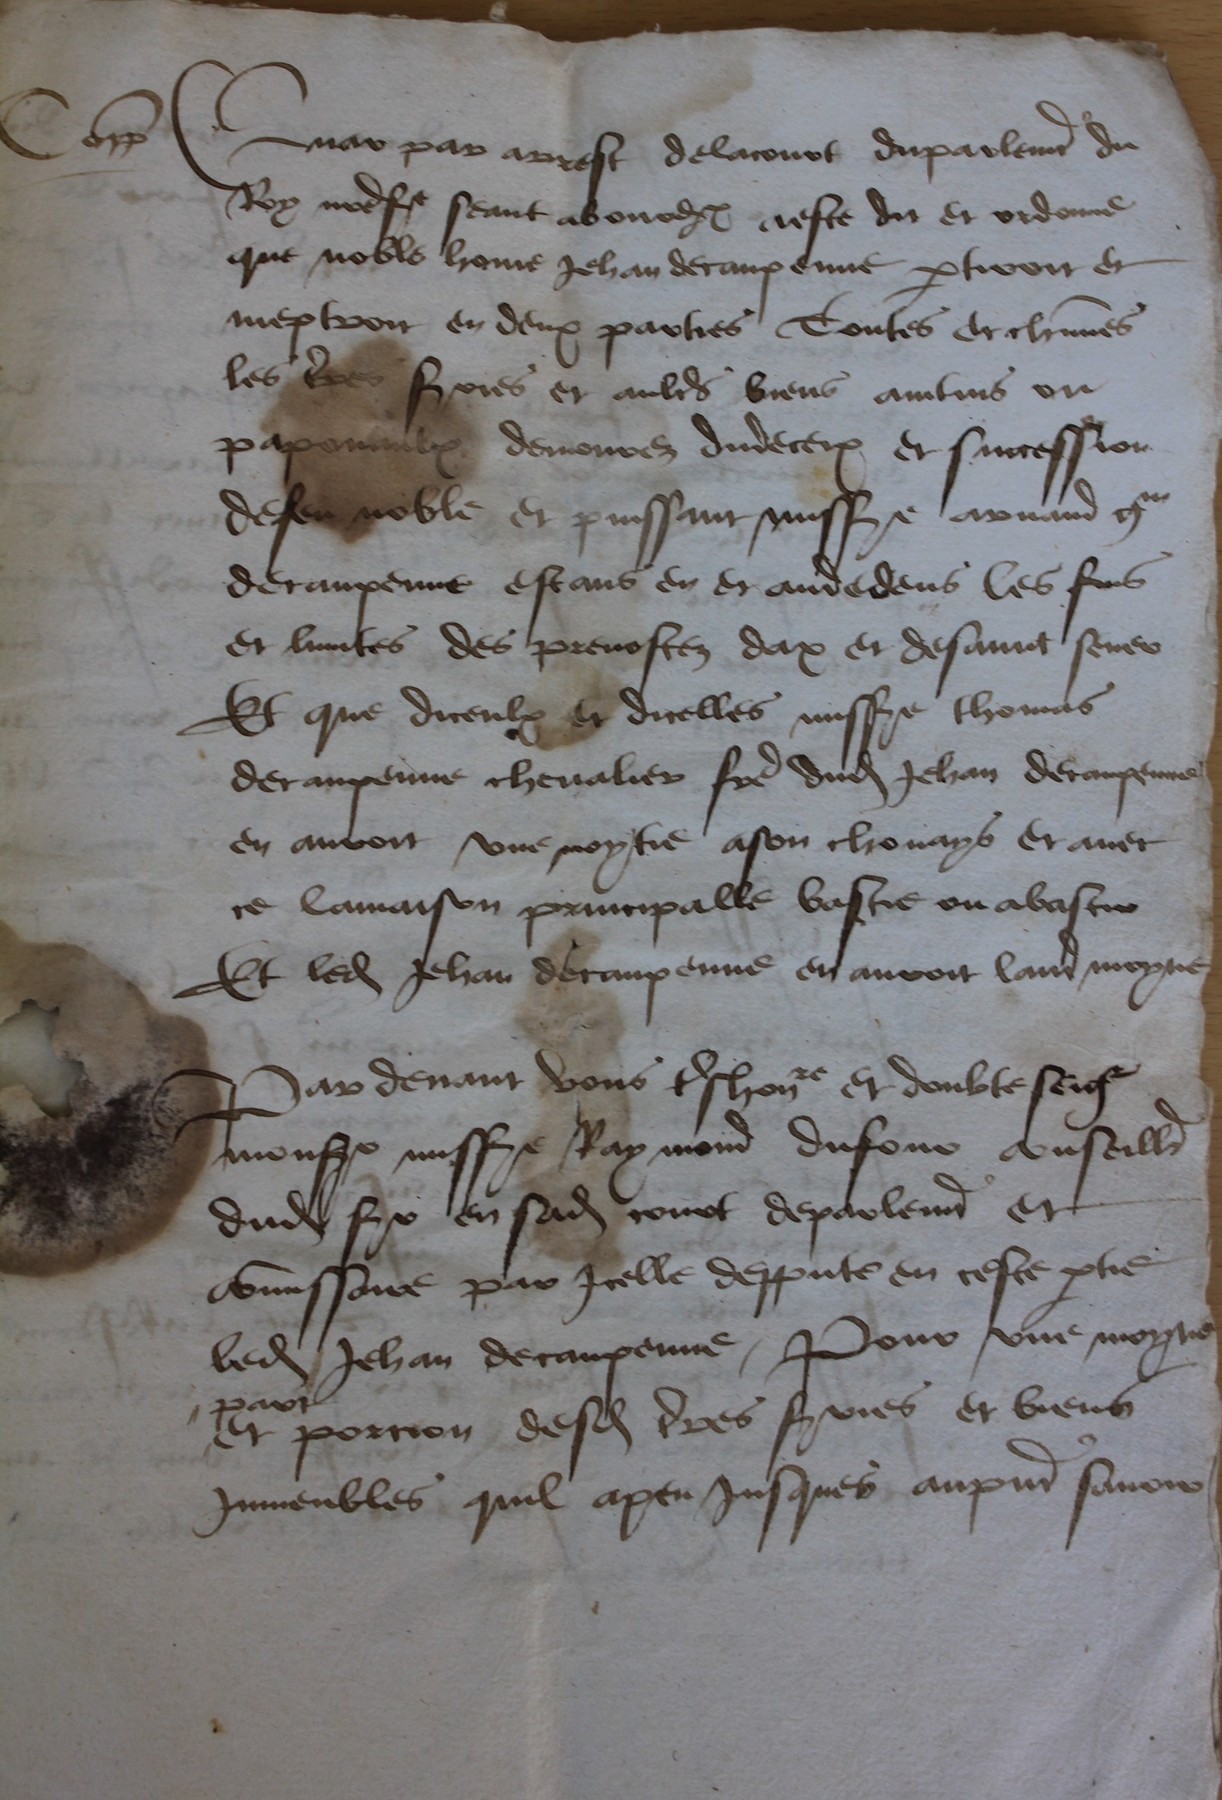 Copp
Quar par arrest delacourt duparlemt du
Roy nred sre seant abourdx aeste dit et ordonne
que noble home Jehan decaupenne ptiroit et
meptroit en deux parties Toutes et chunes
les tres sries et aultrs biens avitins ou
papoaulx demourez dudecerx et succession
defeu noble et puissant missre arnaud gm
decaupenne estans en et audedens les fins
et limites des prevostez dax et desainct sever
Et que diceulx et dicelles missre thomas
decaupenne chevalier fre dud Jehan decaupenne
en auroit une moytie ason chouays et avec
ce lamaison principalle bastie ou abastir
Et led Jehan decaupenne en auroit laut moytie
Pardevant vous treshonre et doubte seigr
monsr missre Raymond dufour conseillr
dudt sr en sad court deparlemt et
comissaire par Icelle deppute en ceste ptie
led Jehan decaupenne / Pour une moytie
part
et portion desd tres sries et biens
Inmeubles quil apeu Jusques aupnt savoir